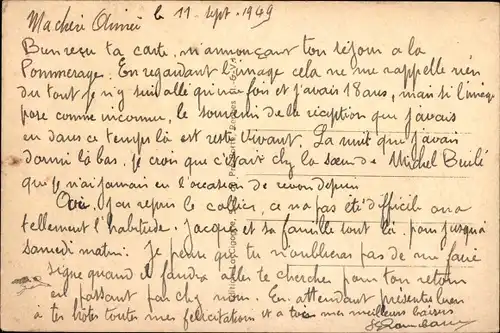 Ma chère Aimée le 11 Sept. 1949
Bien reçu ta carte, m'annonçant ton séjour à la
Pommeraye. En regardant l'image cela ne me rappelle rien
du tout je n'y suis allé qu'une fois et j'avais 18 ans, mais si l'image
pose comme inconnue, le souvenir de la réception que j'avais
eu dans ce temps là est resté vivant. La nuit que j'avais
dormi là bas, je crois que c'était chez la sœur de Michel
qu'y n'ai jamais eu l'occasion de revoir depuis
Oui, j'ai repris le collier, ce n'a pas été difficile on a
tellement l'habitude. Jacques et sa famille sont là. pour jusqu'à
samedi matin. Je pense que tu n'oublieras pas de me faire
signe quand il faudra aller te chercher pour ton retour
en passant par chez nous. En attendant présentes bien
à tes hôtes toutes mes félicitations et à toi mes meilleurs baisers